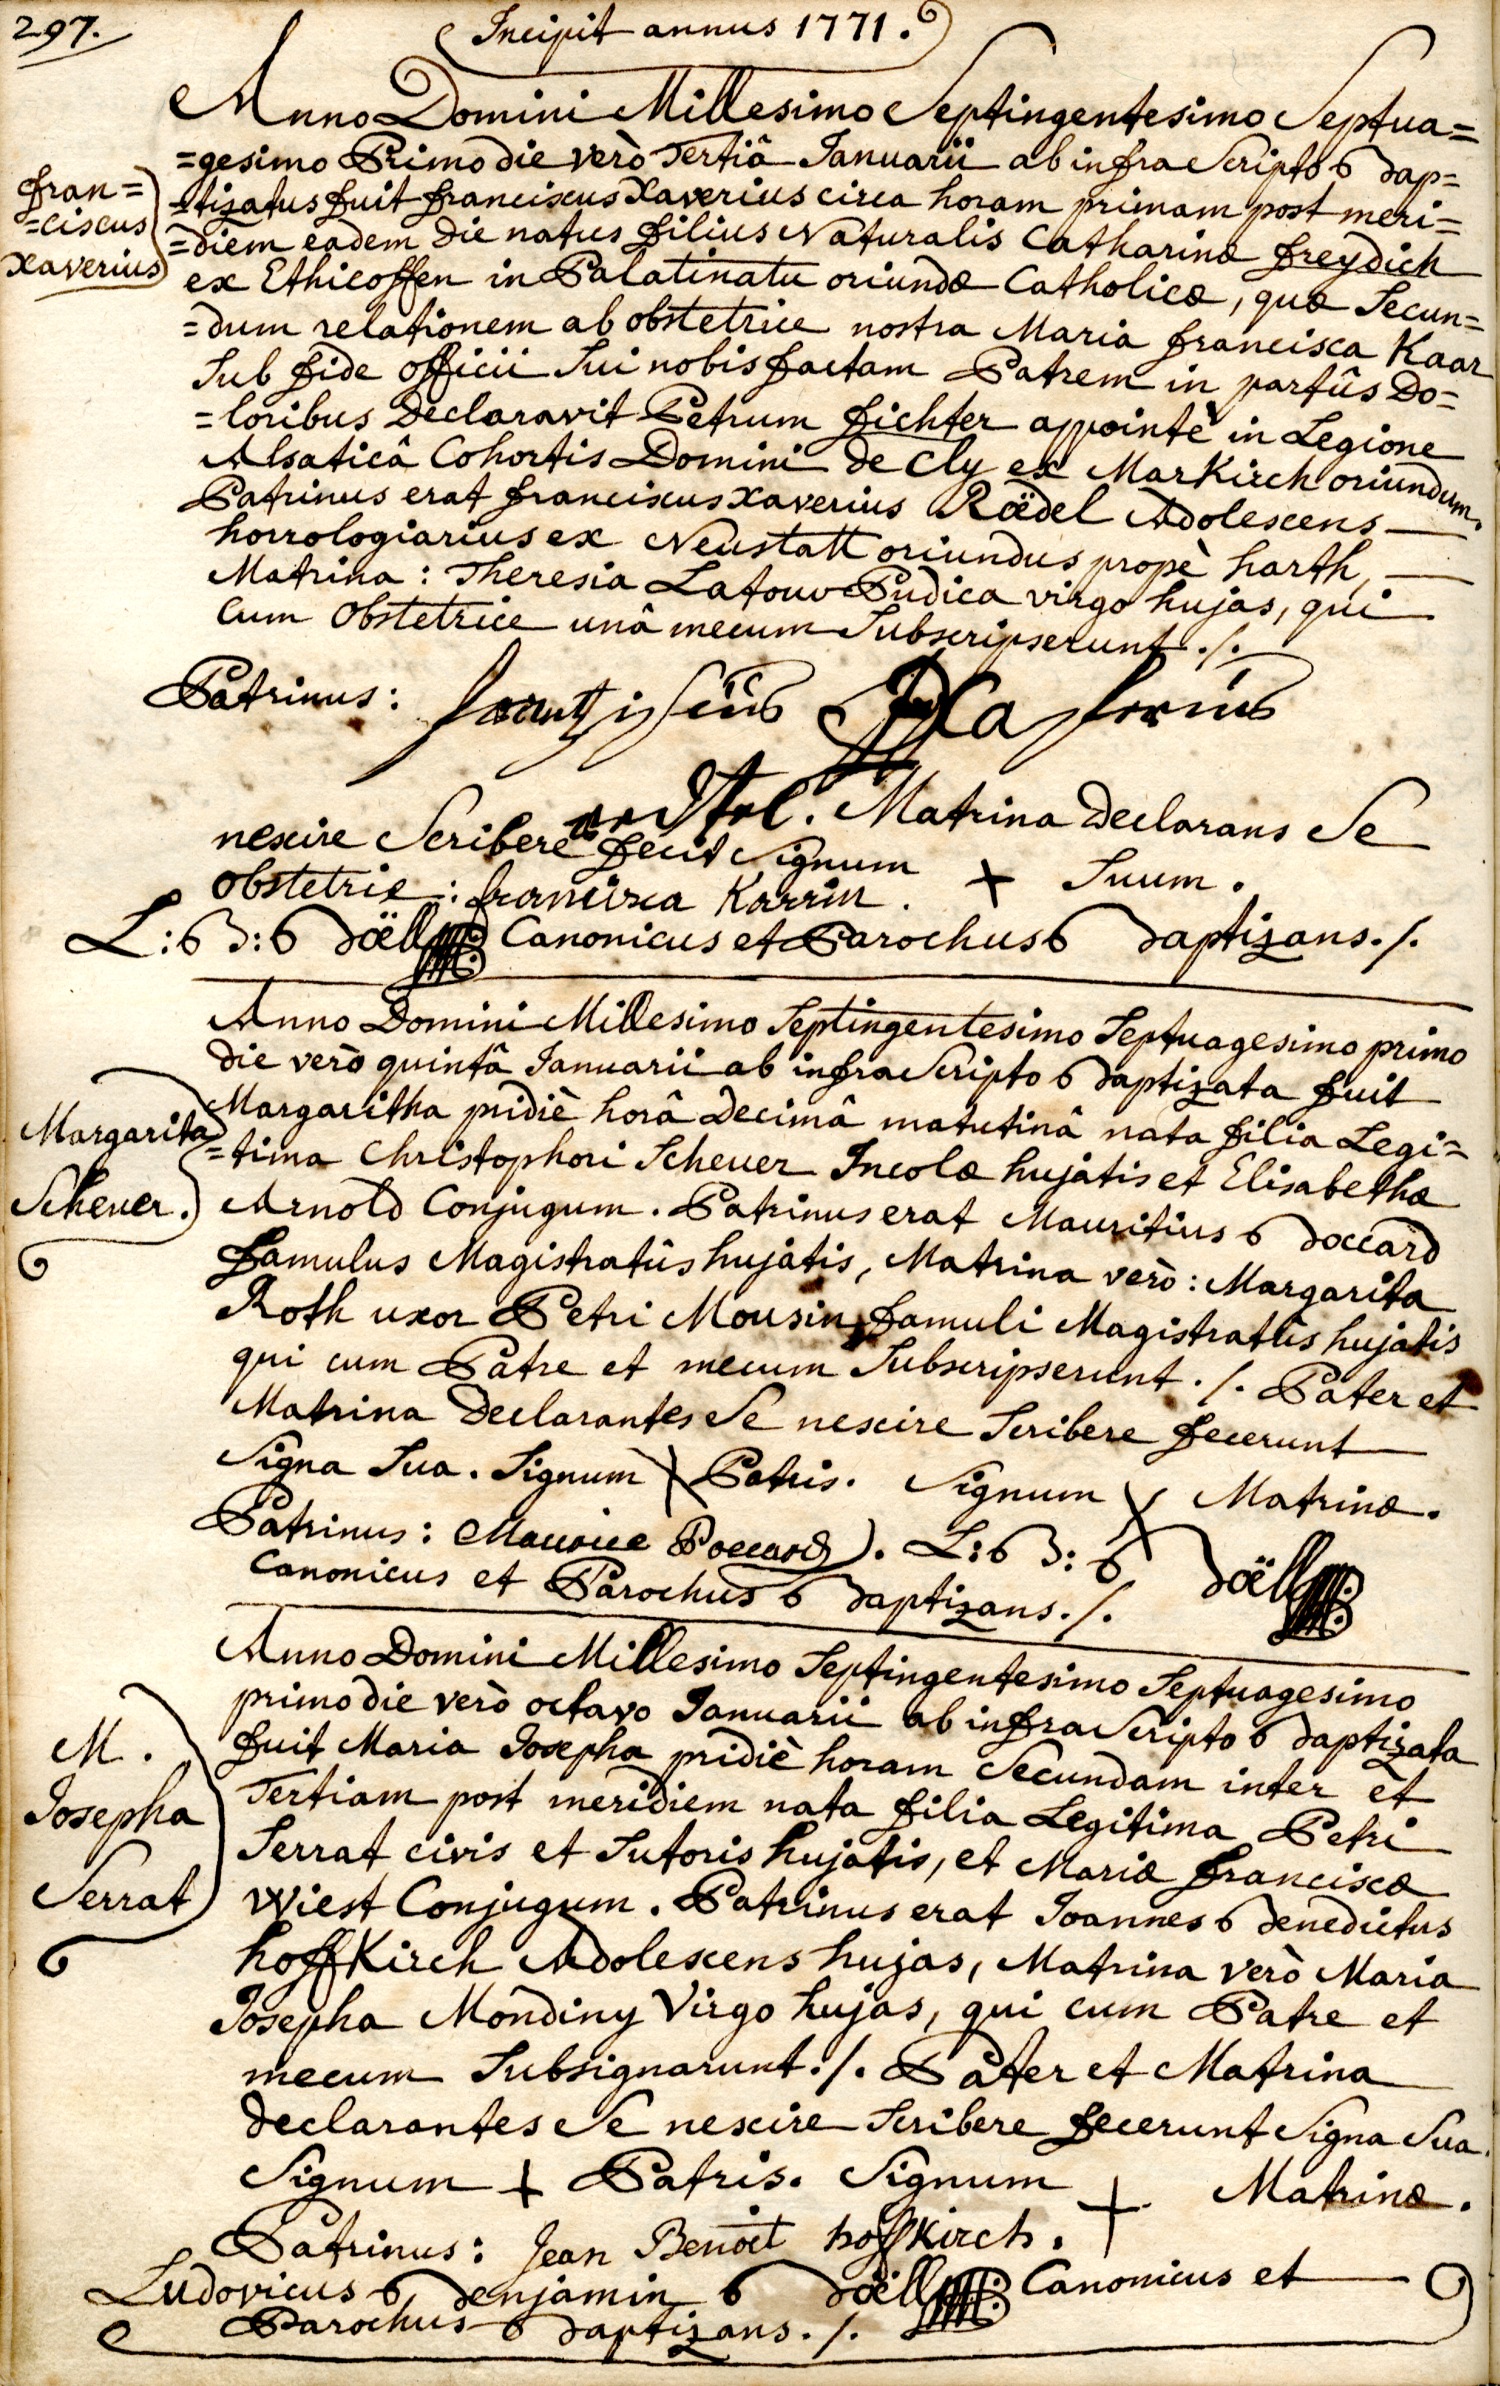 297.
Incipit annus 1771.
Anno Domini Millesimo Septingentesimo Septua=
=gesimo Primo die verò Tertiâ Januarii ab infra Scripto Bap=
=tizatus fuit franciscus Xaverius circa horam primam post meri=
=diem eadem die natus filius Naturalis Catharinæ freydich
ex Ethicoffen in Palatinatu oriundæ Catholicæ, quæ Secun=
=dum relationem ab obstetrice nostra Maria francisca Kaar
Sub fide officii Sui nobis factam Patrem in partûs Do=
=loribus Declaravit Petrum fichter appointè in Legione
Alsaticâ Cohortis Domini de Cly ex MarKirch oriundum.
Patrinus erat franciscus Xaverius Rædel Adolescens
horrologiarius ex Neustatt oriundus propè harth,
Matrina: Theresia Latour Pudica virgo hujas, qui
Cum Obstetrice unâ mecum Subscripserunt ./.
fran=
=ciscus
Xaverius
Patrinus: frantzisciis Xaferius
Matrina Declarans Se
nescire Scribere fecit Signum + Suum.
Obstetrix: francisca Karrin.
L: B: Böell Canonicus et Parochus Baptizans ./.
Anno Domini Millesimo Septingentesimo Septuagesimo primo
die verò quintâ Januarii ab infra Scripto Baptizata fuit
Margaritha pridiè horâ Decimâ matutinâ nata filia Legi=
=tima Christophori Scheuer Incolæ hujatis et Elisabethæ
Arnold Conjugum. Patrinus erat Mauritius Boccard
famulus Magistratûs hujâtis, Matrina verò: Margarita
Roth uxor Petri Mousin famuli Magistratûs hujatis
qui cum Patre et mecum Subscripserunt ./. Pater et
Matrina Declarantes Se nescire Scribere fecerunt
Signa Sua. Signum X Patris. Signum X Matrinæ.
Margarita
Scheuer.
Patrinus: Maurice Poccard. L: B: Böell
Canonicus et Parochus Baptizans ./.
Anno Domini Millesimo Septingentesimo Septuagesimo
primo die verò octavo Januarii ab infra Scripto Baptizata
fuit Maria Josepha pridiè horam Secundam inter et
Tertiam post meridiem nata filia Legitima Petri
Serrat civis et Sutoris hujatis, et Mariæ franciscæ
Wiest Conjugum. Patrinus erat Joannes Benedictus
hoffKirch Adolescens hujas, Matrina verò Maria
Josepha Mondiny Virgo hujas, qui cum Patre et
mecum Subsignarunt ./. Pater et Matrina
declarantes Se nescire Scribere fecerunt Signa Sua.
Signum + Patris. Signum + Matrinæ.
M.
Josepha
Serrat
Patrinus: Jean Benoit hoffkirch.
Ludovicus Benjamin Böell Canonicus et
Parochus Baptizans ./.